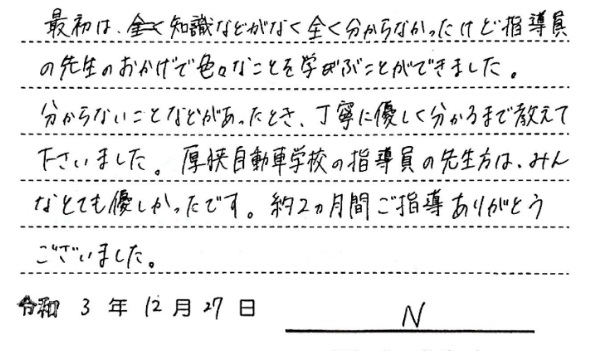 最初は、全く知識などがなく全く分からなかったけど指導員
の先生のおかげで色々なことを学ぶことができました。
分からないことなどがあったとき、丁寧に優しく分かるまで教えて
下さいました。厚狭自動車学校の指導員の先生方は、みん
なとても優しかったです。約2ヵ月間ご指導ありがとう
ございました。
令和 3 年 12 月 27 日 N